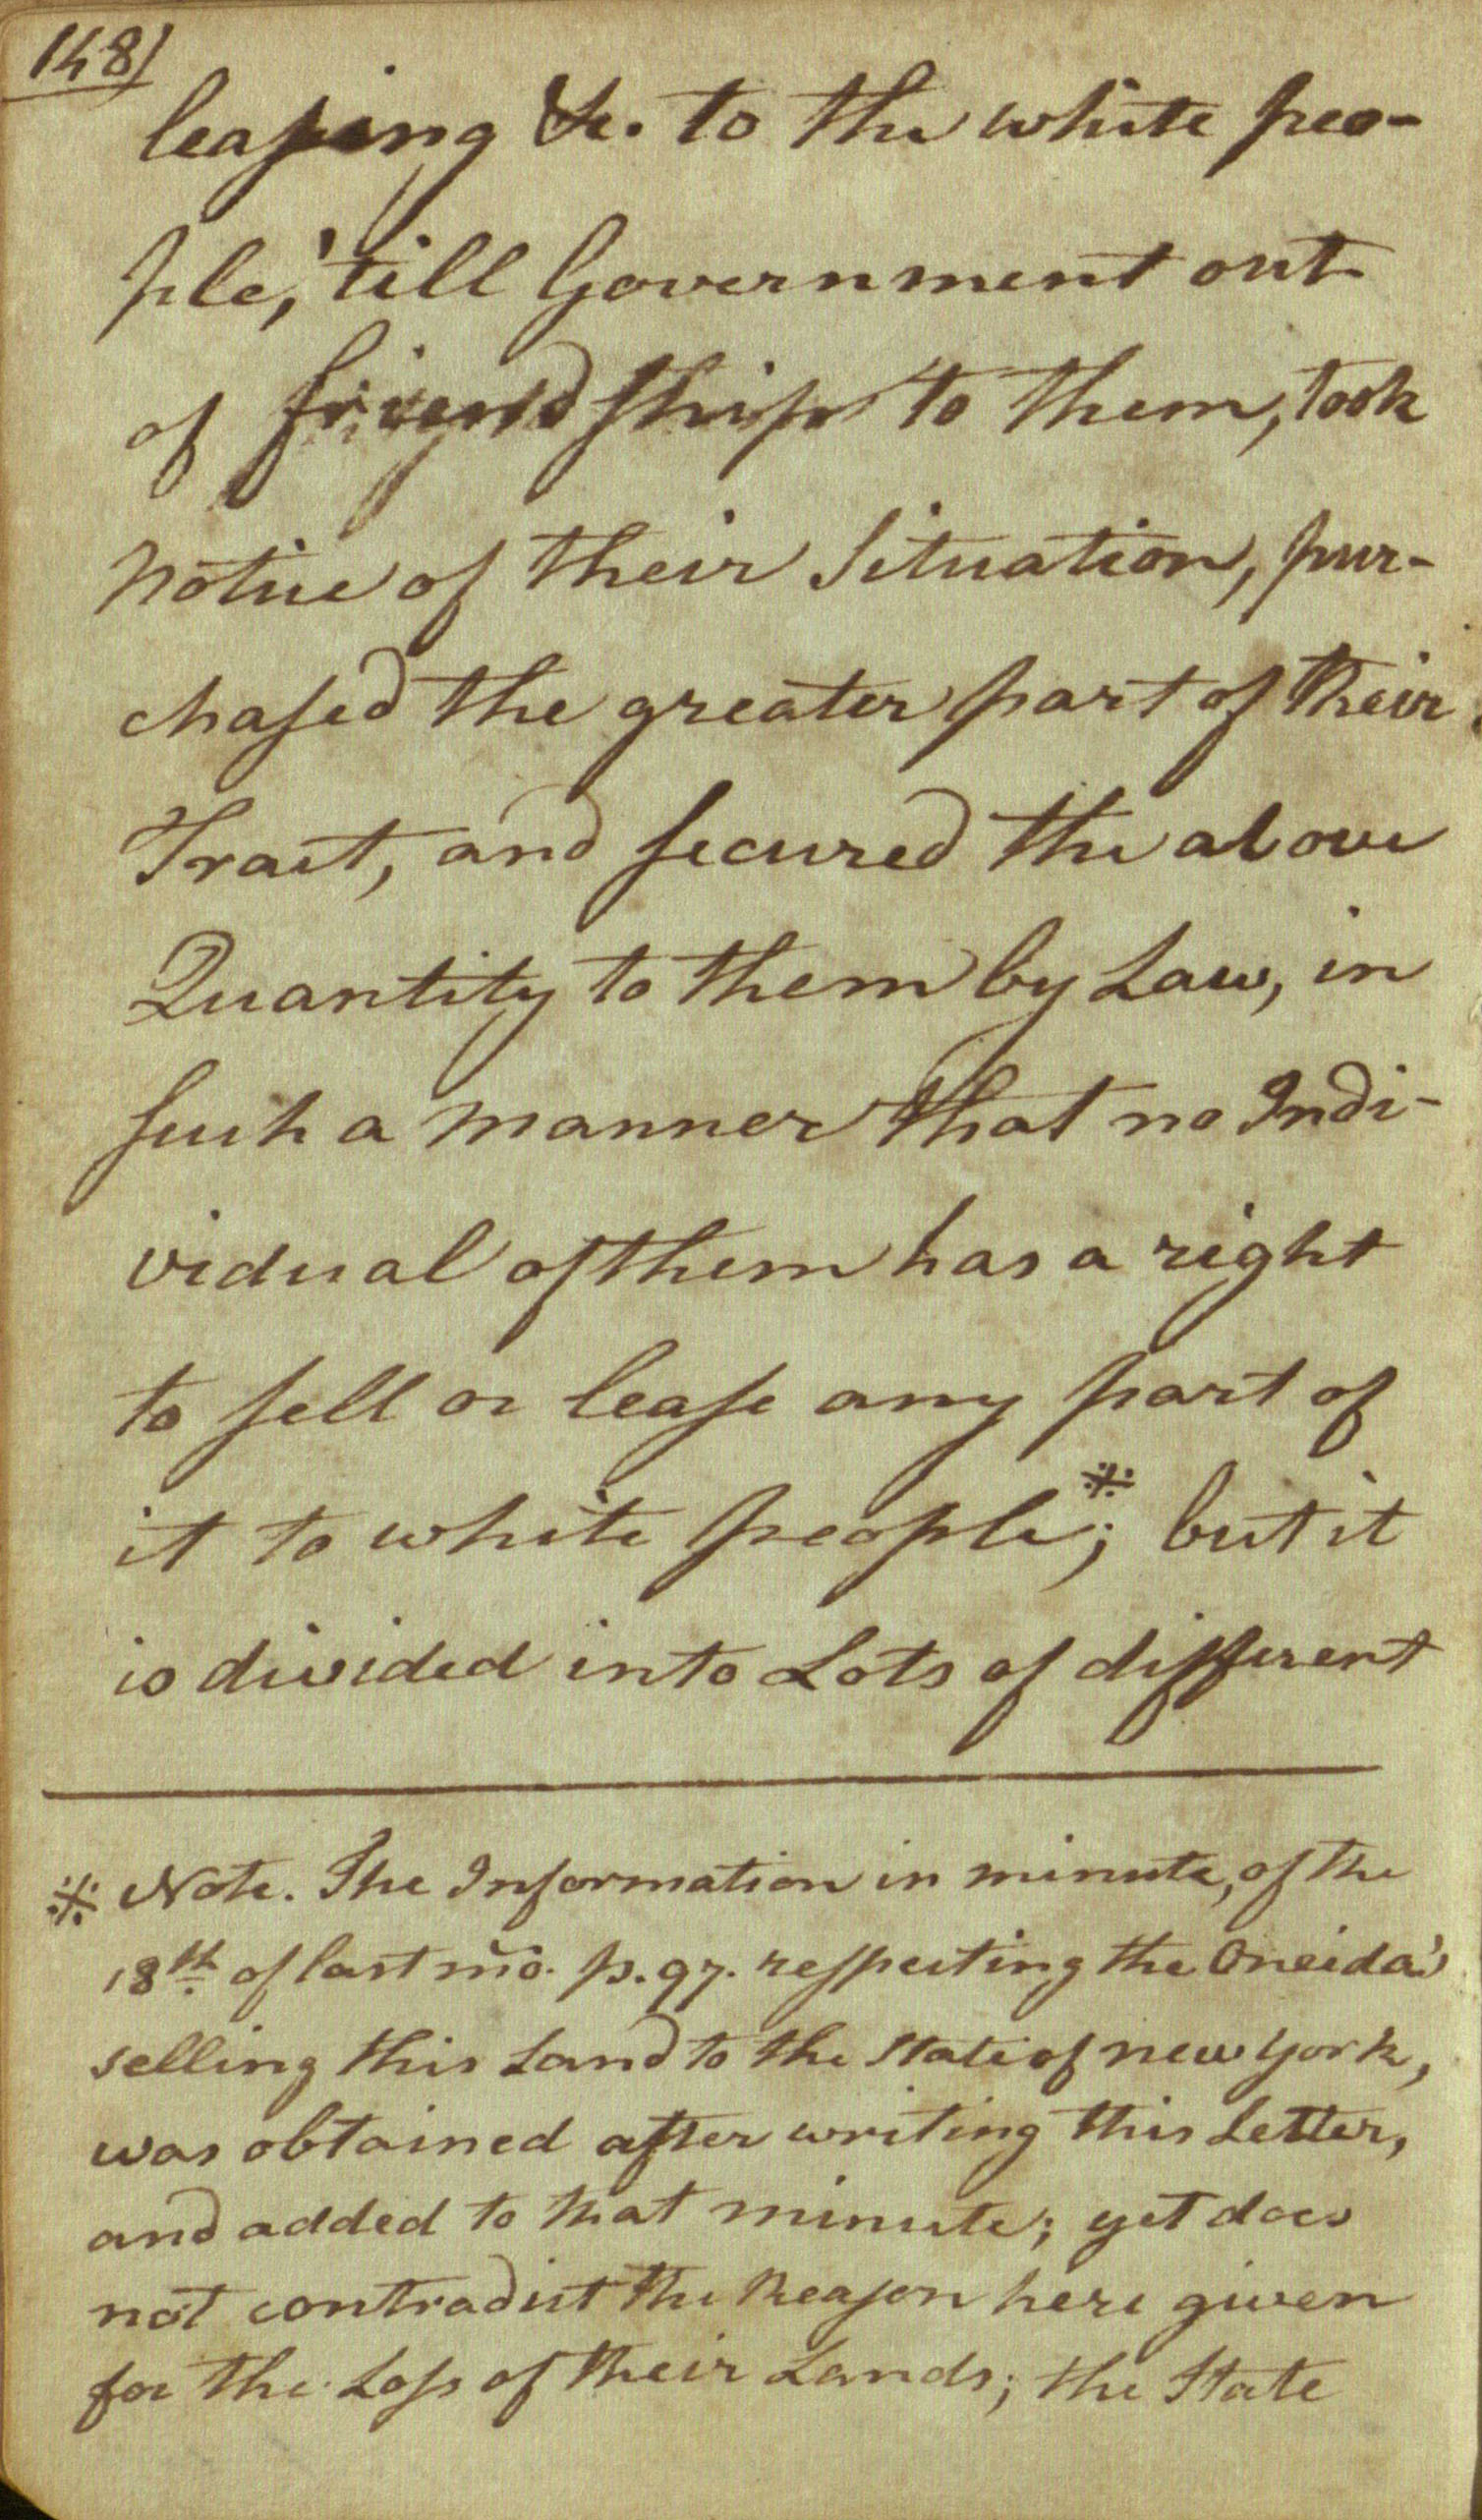 148)
leasing &c. to the white peo-
ple, 'till Government out
of friendship to them, took
notice of their Situation, pur-
chased the greater part of their
Tract, and secured the above
Quantity to them by Law, in
such a manner that no Indi-
vidual of them has a right
to sell or lease any part of
it to white people;※ but it
is divided into Lots of different
※ Note. The Information in minute, of the
18th of last mo. p. 97. respecting the Oneida's
selling this Land to the State of new York,
was obtained after writing this Letter,
and added to that minute; yet does
not contradict the Reason here given
for the Loss of their Lands; the State